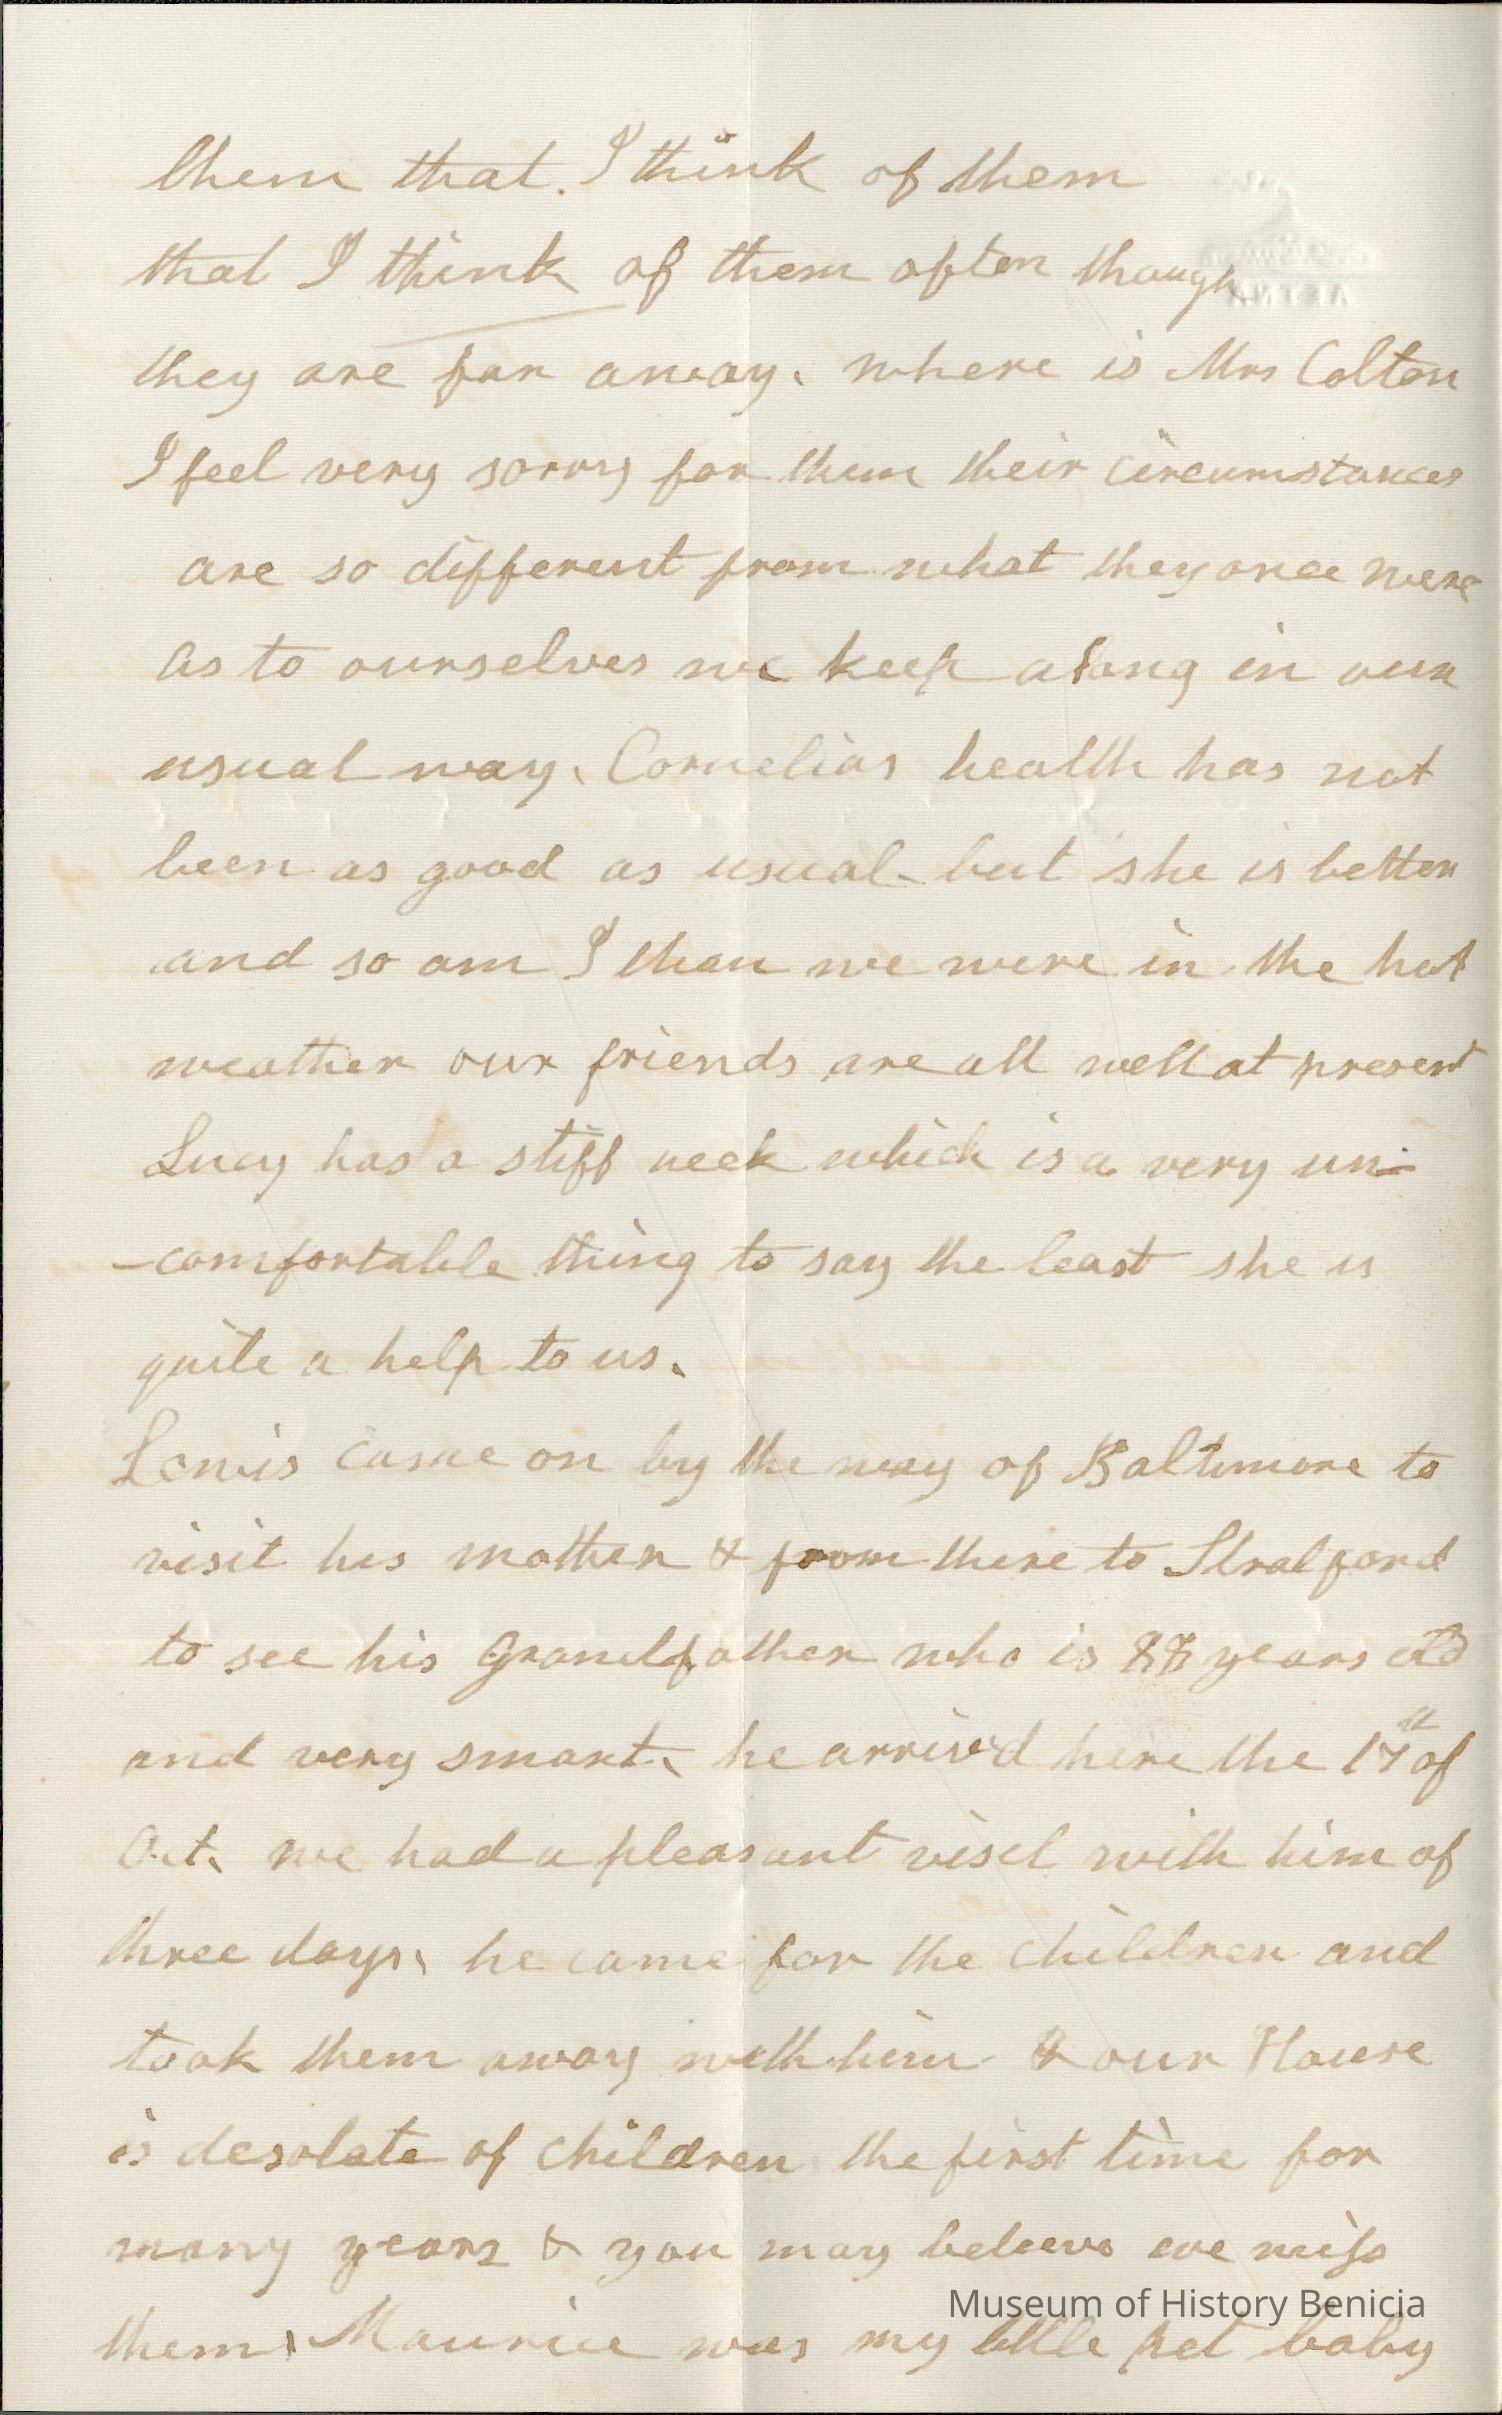 them that I think of them
that I think of them often though
they are far away. where is Mrs Colton
I feel very sorry for them their circumstances
are so different from what they once were
as to ourselves we keep along in our
usual way. Cornelias health has not
been as good as usual but she is better
and so am I than we were in the hot
weather our friends are all well at present
Lucy has a stiff neck which is a very un-
-comfortable thing to say the least she is
quite a help to us.
Lewis came on by the way of Baltimore to
visit his mother & from there to Stratford
to see his Grandfather who is 88 years old
and very smart. he arrived here the 17th of
Oct. we had a pleasant visit with him of
three days. he came for the children and
took them away with him & our House
is desolate of children the first time for
many years & you may believe we miss
Museum of History Benicia
them. Maurice was my little pet baby